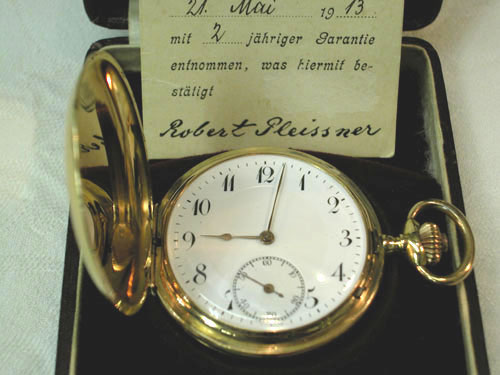 21. Mai 1913
mit 2 jähriger Garantie
entnommen, was hiermit be-
stätigt
Robert Pleissner
12
1
2
3
4
5
7
8
9
10
11
60